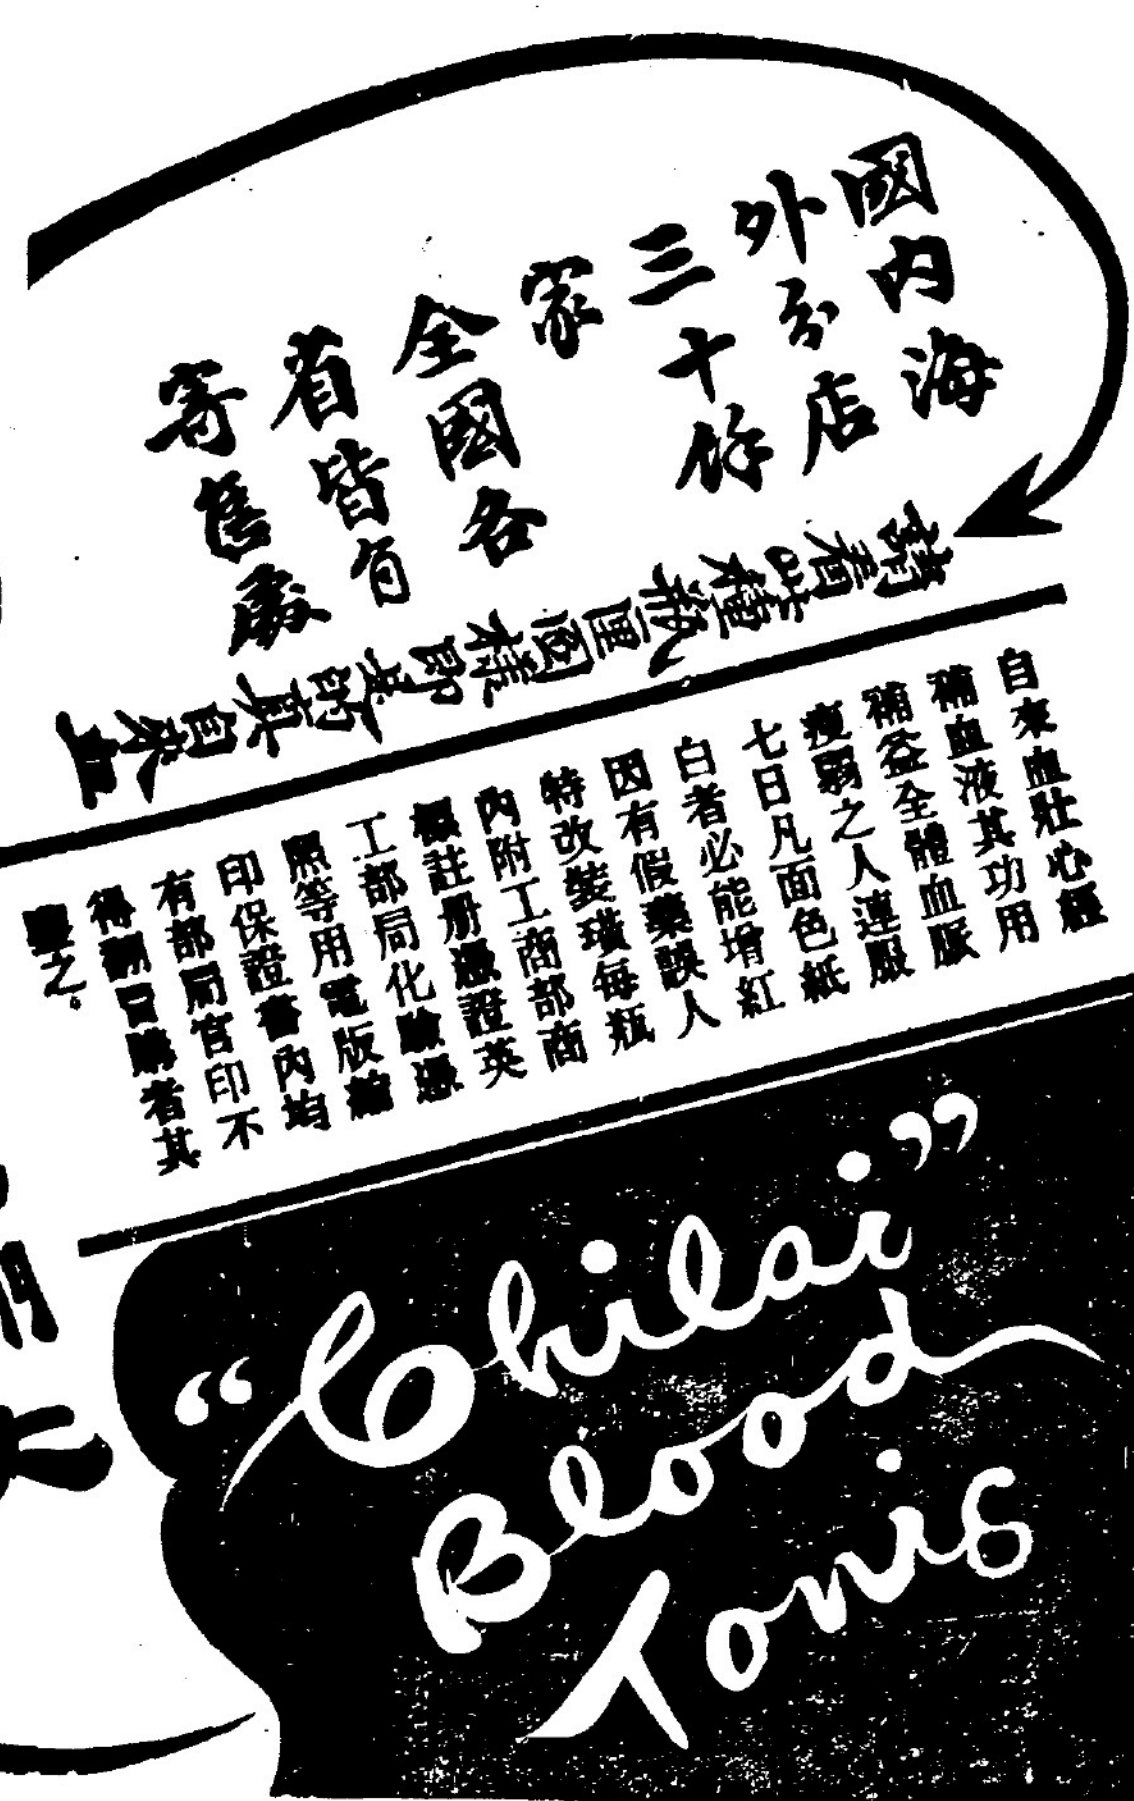 國內海
外分店
三十餘
家
全國各
省皆有
寄售處
請看此種瓶匣圖樣即是五師真自來血
自來血壯心經
補血液其功用
補益全體血脈
瘦弱之人連服
七日凡面色紙
白者必能增紅
因有假藥誤人
特改裝璜每瓶
內附工商部商
標註册憑證英
工部局化驗憑
照等用電版縮
印保證書內均
有部局官印不
得翻冒購者其
鑒之。
"Chilai"
Blood
Tonic